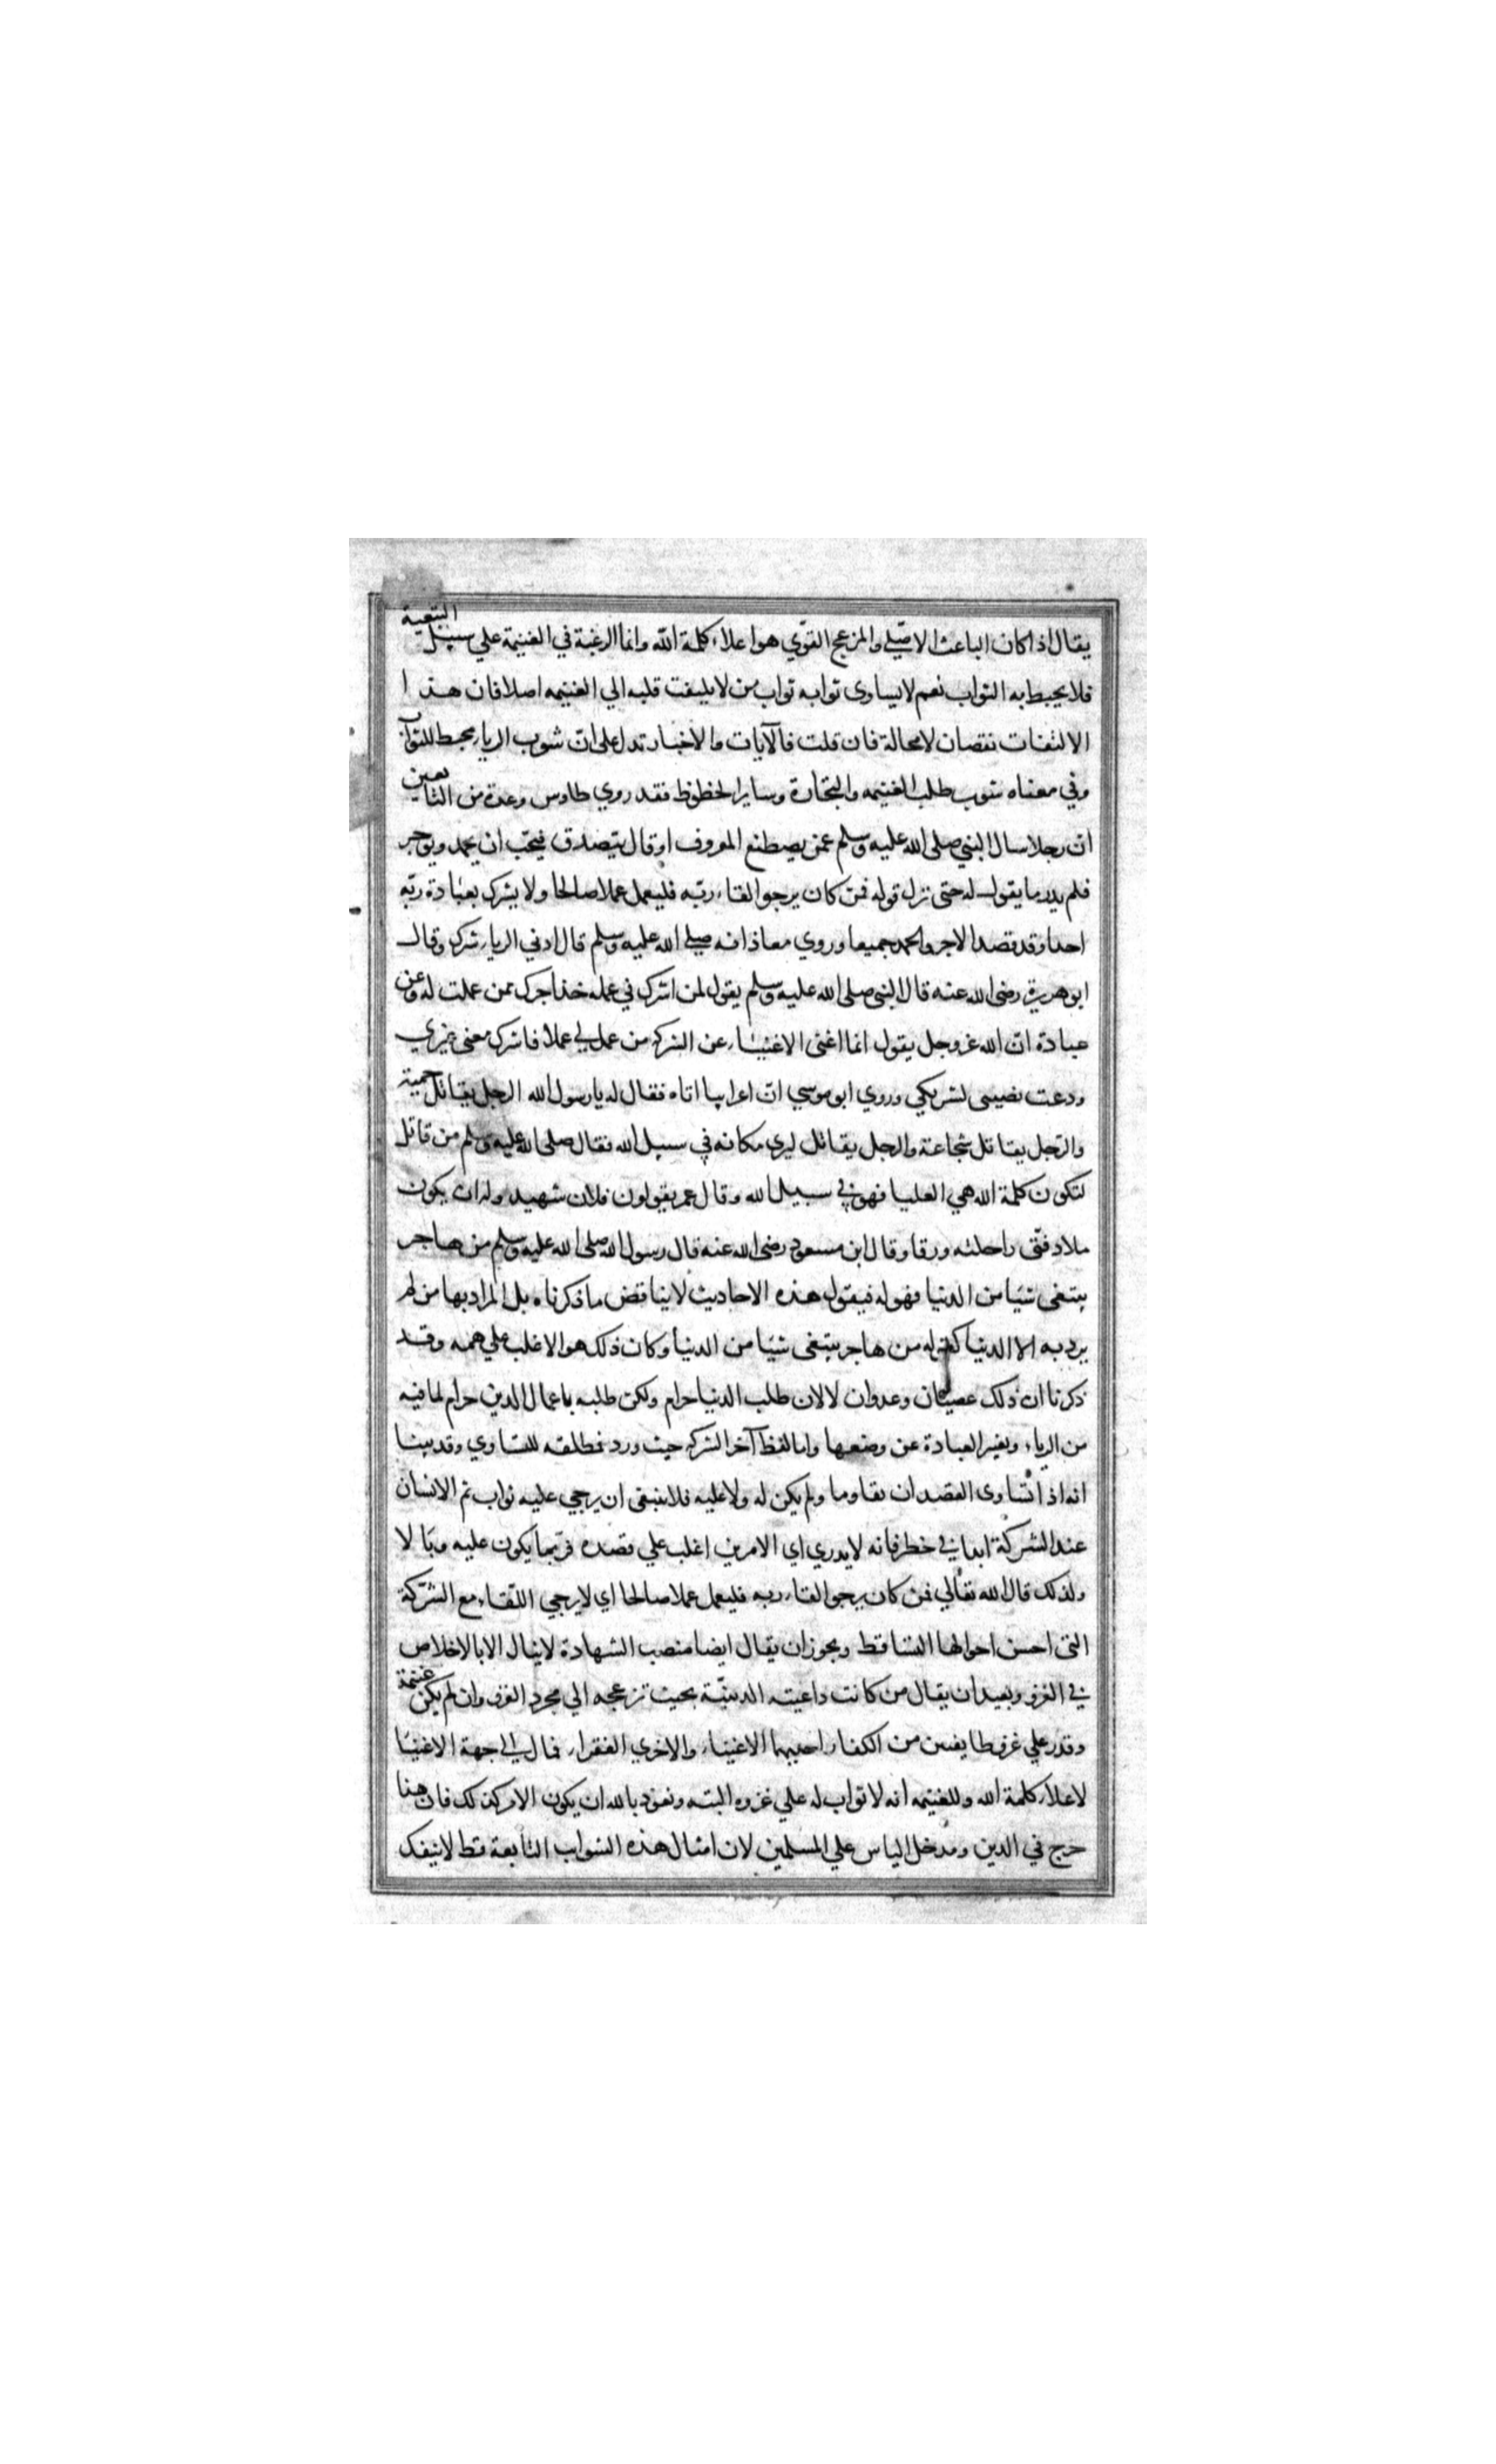 يقال اذا كان الباعث الاصلي والمزعج القوّي هو اعلاء كلمة الله وانما الرغبة في الغنيمة علي سبيل التبعية
فلا يحبط به الثواب نعم لا يساوى ثوابه ثواب من لا يلتفت قلبه الي الغنيمه اصلا فان هذا
الالتفات نقصان لا محالة فان قلت فالآيات والاخبار تدل على انّ شوب الرياء محبط للثواب
وفي معناه شوب طلب الغنيمه والتجارة وساير الحظوظ فقد روي طاوس وعدة من التابعين
ان رجلا سال النبي صلى الله عليه وسلم عمن يصطنع المعروف او قال يتصدق فيحبّ ان يحمد ويوجر
فلم يدر ما يقول له حتى نزل قوله فمن كان يرجو لقاء ربّه فليعمل عملا صالحا ولا يشرك بعبادة ربّه
احدا وقد قصد الاجر والحمد جميعا وروي معاذ انه صلي الله عليه وسلم قال ادني الرياء شرك وقال
ابو هريرة رضى الله عنه قال النبي صلى الله عليه وسلم يقول لمن اشرك في عمله خذ اجرك ممن عملت له وعن
عبادة انّ الله عز وجل يقول انا اغنى الاغنياء عن الشركه من عمل لي عملا فاشرك معى غيري
ودعت نصيبى لشريكي وروي ابو موسي انّ اعرابيا اتاه فقال له يا رسول الله الرجل يقاتل حمية
والرّجل يقاتل شجاعة والرجل يقاتل ليرى مكانه في سبيل الله فقال صلى الله عليه وسلم من قاتل
لتكون كلمة الله هي العليا فهو في سبيل الله وقال عمر يقولون فلان شهيد ولم ان يكون
ملا دفتى راحلته ورقا وقال ابن مسعود رضى الله عنه قال رسول الله صلى الله عليه وسلم من هاجر
يبتغى شيا من الدنيا فهو له فيقول هذه الاحاديث لا يناقض ما ذكرناه بل المراد بها من لم
يرد به الا الدنيا كقوله من هاجر يبتغى شيئا من الدنيا وكان ذلك هو الاغلب علي همه وقد
ذكرنا ان ذلك عصيان وعدوان لا لان طلب الدنيا حرام ولكن طلبه باعمال الدين حرام لما فيه
من الرياء وتغير العبادة عن وضعها واما لفظ آخر الشركه حيث ورد فطلقه للتساوي وقد بينا
انه اذا تساوى القصدان تقاوما ولم يكن له ولا عليه فلا ينبغى ان يرجي عليه ثواب ثم الانسان
عند الشركة ابدا في خطر فانه لا يدري اي الامرين اغلب علي قصده فربّما يكون عليه وبالا
ولذلك قال الله تعالي فمن كان يرجو لقاء ربه فليعمل عملا صالحا اي لا يرجي اللقاء مع الشركة
التى احسن احوالها التساقط ويجوز ان يقال ايضا منصب الشهادة لا ينال الا بالاخلاص
في الغزو وبعيد ان يقال من كانت داعيته الدينيّة بحيث تزعجه الي مجرد الغزو وان لم يكن غنيمة
وقدر علي غزو طايفتين من الكفار احديهما الاغنياء والاخري الفقراء فمال الي جهة الاغنيا
لاعلاء كلمة الله وللغنيمه انه لا ثواب له علي غزوه البتـه ونعوذ بالله ان يكون الامر كذلك فان هذا
حرج في الدين ومدخل الياس علي المسلمين لان امثال هذه الشواب التابعة قط لا ينفك